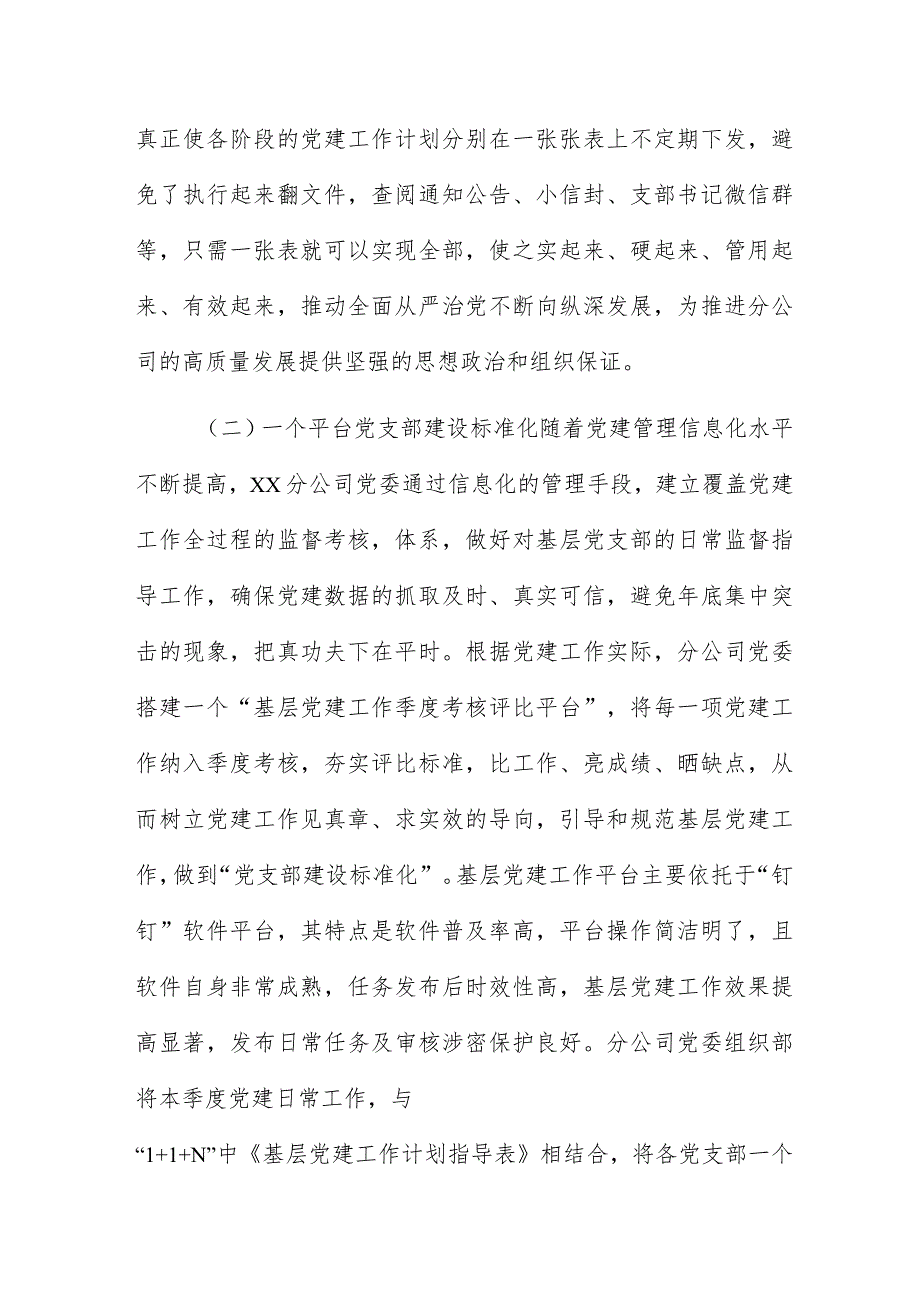 真正使各阶段的党建工作计划分别在一张张表上不定期下发，避
免了执行起来翻文件，查阅通知公告、小信封、支部书记微信群
等，只需一张表就可以实现全部，使之实起来、硬起来、管用起
来、有效起来，推动全面从严治党不断向纵深发展，为推进分公
司的高质量发展提供坚强的思想政治和组织保证。
（二）一个平台党支部建设标准化随着党建管理信息化水平
不断提高，XX分公司党委通过信息化的管理手段，建立覆盖党建
工作全过程的监督考核，体系，做好对基层党支部的日常监督指
导工作，确保党建数据的抓取及时、真实可信，避免年底集中突
击的现象，把真功夫下在平时。根据党建工作实际，分公司党委
搭建一个“基层党建工作季度考核评比平台”，将每一项党建工
作纳入季度考核，夯实评比标准，比工作、亮成绩、晒缺点，从
而树立党建工作见真章、求实效的导向，引导和规范基层党建工
作，做到“党支部建设标准化”。基层党建工作平台主要依托于“钉
钉”软件平台，其特点是软件普及率高，平台操作简洁明了，且
软件自身非常成熟，任务发布后时效性高，基层党建工作效果提
高显著，发布日常任务及审核涉密保护良好。分公司党委组织部
将本季度党建日常工作，与
“1+1+N”中《基层党建工作计划指导表》相结合，将各党支部一个